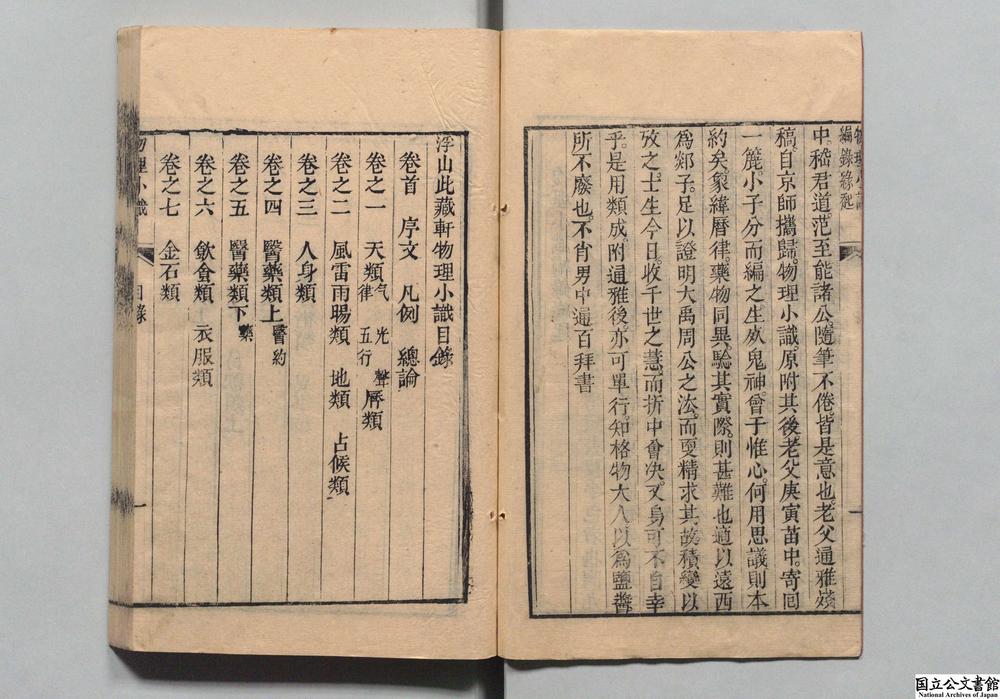 物理小識
編錄緣起
中。嵇君道。范至能諸公。隨筆不倦。皆是意也。老父通雅殘
稿。自京師攜歸。物理小識。原附其後。老父庚寅苗中。寄囘
一簏。小子分而編之。生死鬼神。會于惟心。何用思議。則本
約矣。象緯曆律。藥物同異。驗其實際。則甚難也。適以遠西
爲郯子。足以證明大禹周公之法。而更精求其故。積變以
攷之。士生今日。收千世之慧。而折中會決。又烏可不自幸
乎。是用類成。附通雅後。亦可單行。知格物大人。以爲鹽醬
所不廢也。不肖男中通百拜書
浮山此藏軒物理小識目錄
卷首　序文　凡例　總論
卷之一　天類 气 光 聲 律 五行　曆類
卷之二　風雷雨暘類　地類　占候類
卷之三　人身類
卷之四　醫藥類上 醫約
卷之五　醫藥類下 藥
卷之六　飲食類　衣服類
卷之七　金石類
物理小識
目錄
一
国立公文書館
National Archives of Japan